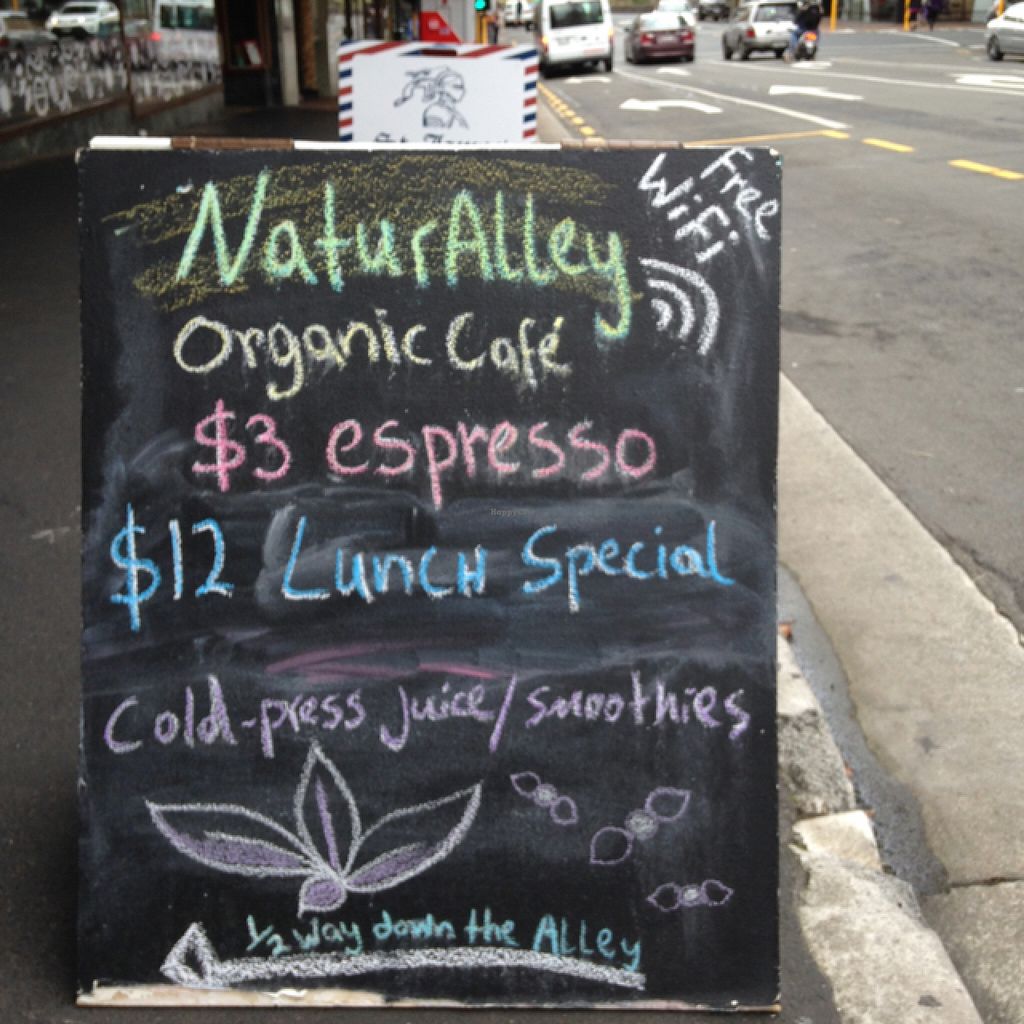 NaturAlley
Free
WiFi
Organic Café
$3 espresso
$12 Lunch Special
Cold-press juice/smoothies
1/2 way down the Alley